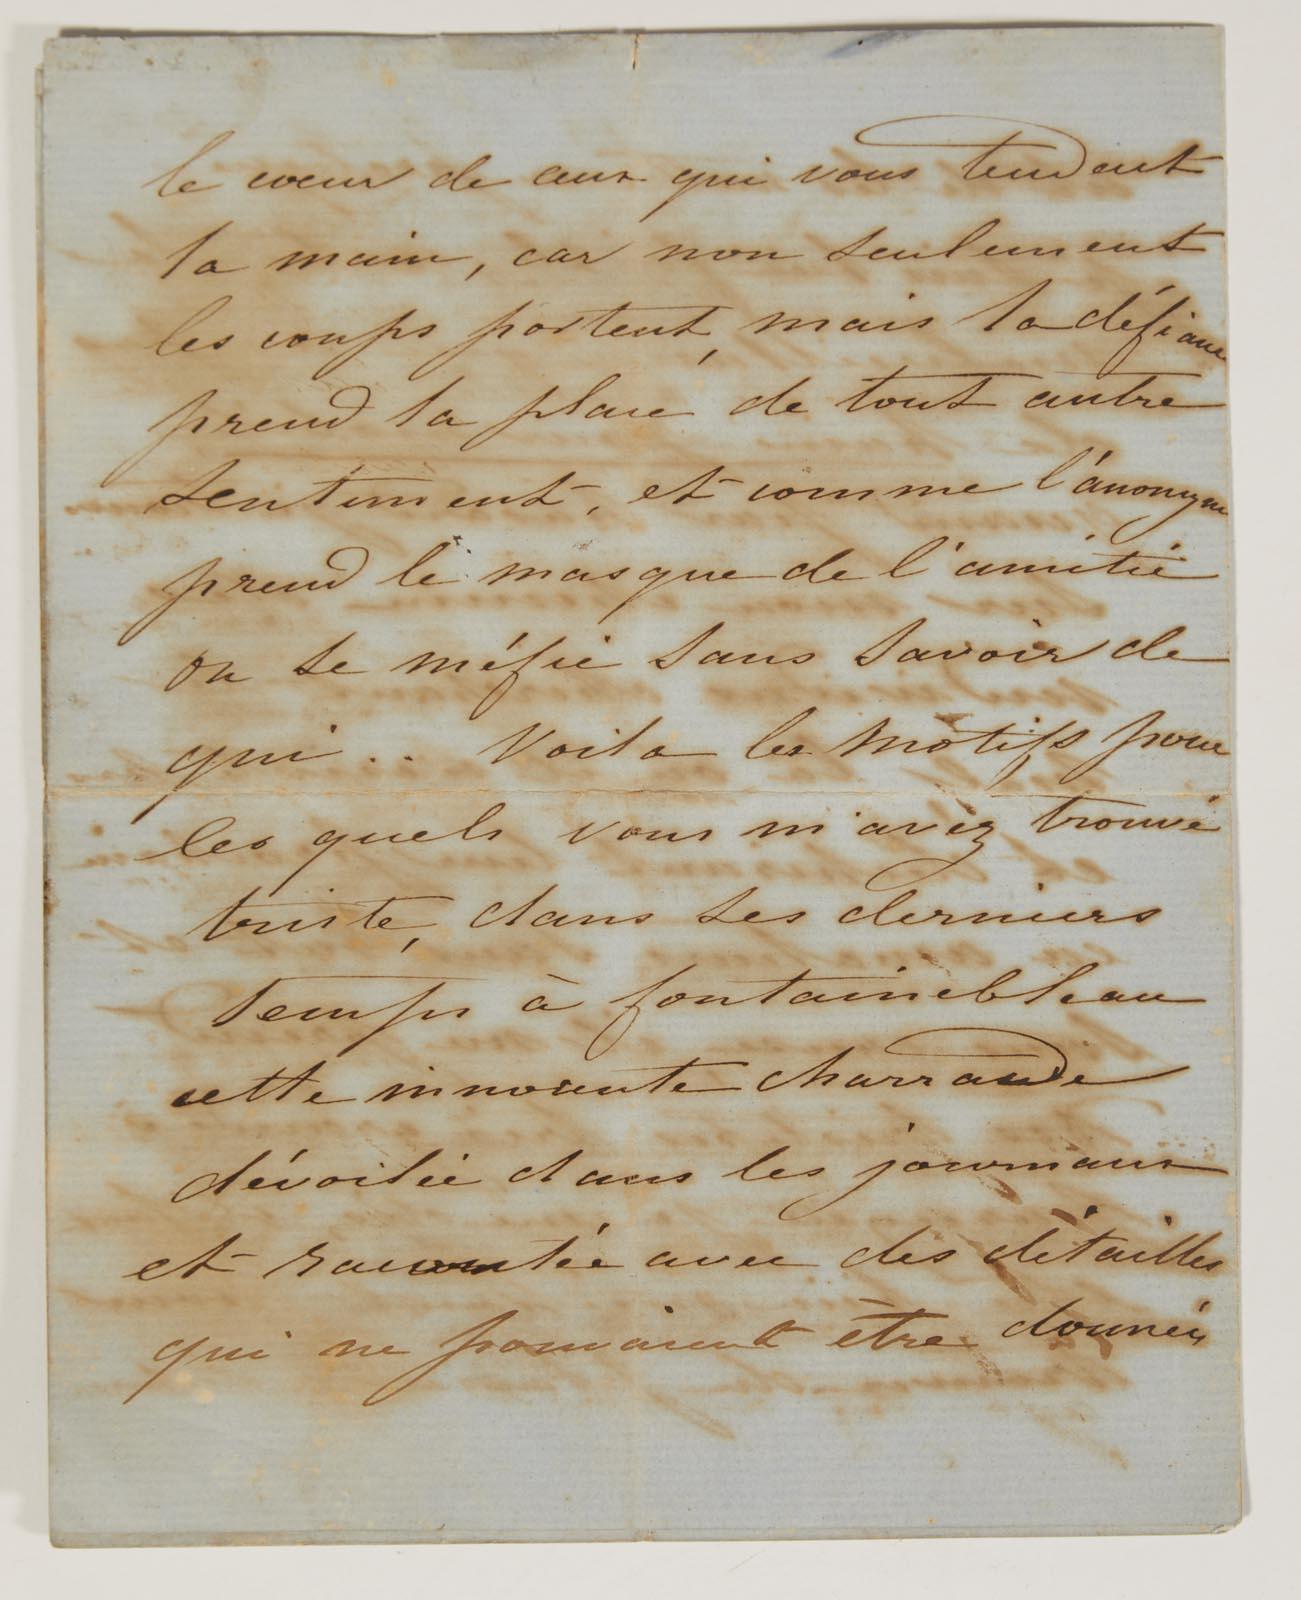 le coeur de ceux qui vous tendent
la main, car non seulement
les coups portent, mais la défiance
prend la place de tout autre
sentiment, et comme l'anonyme
prend le masque de l'amitié
on se méfie sans savoir de
qui .. Voila les motifs pour
les quels vous m'avez trouvé
triste, dans ses derniers
temps à fontainebleau
cette innocente charrade
dévoilée dans les journaux
et racontée avec des détailles
qui ne pouvaient être donnés